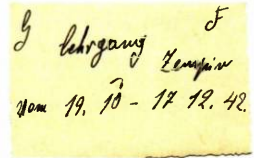 G F
Lehrgang Zempin
Vom 19. 10 - 17 12. 42.